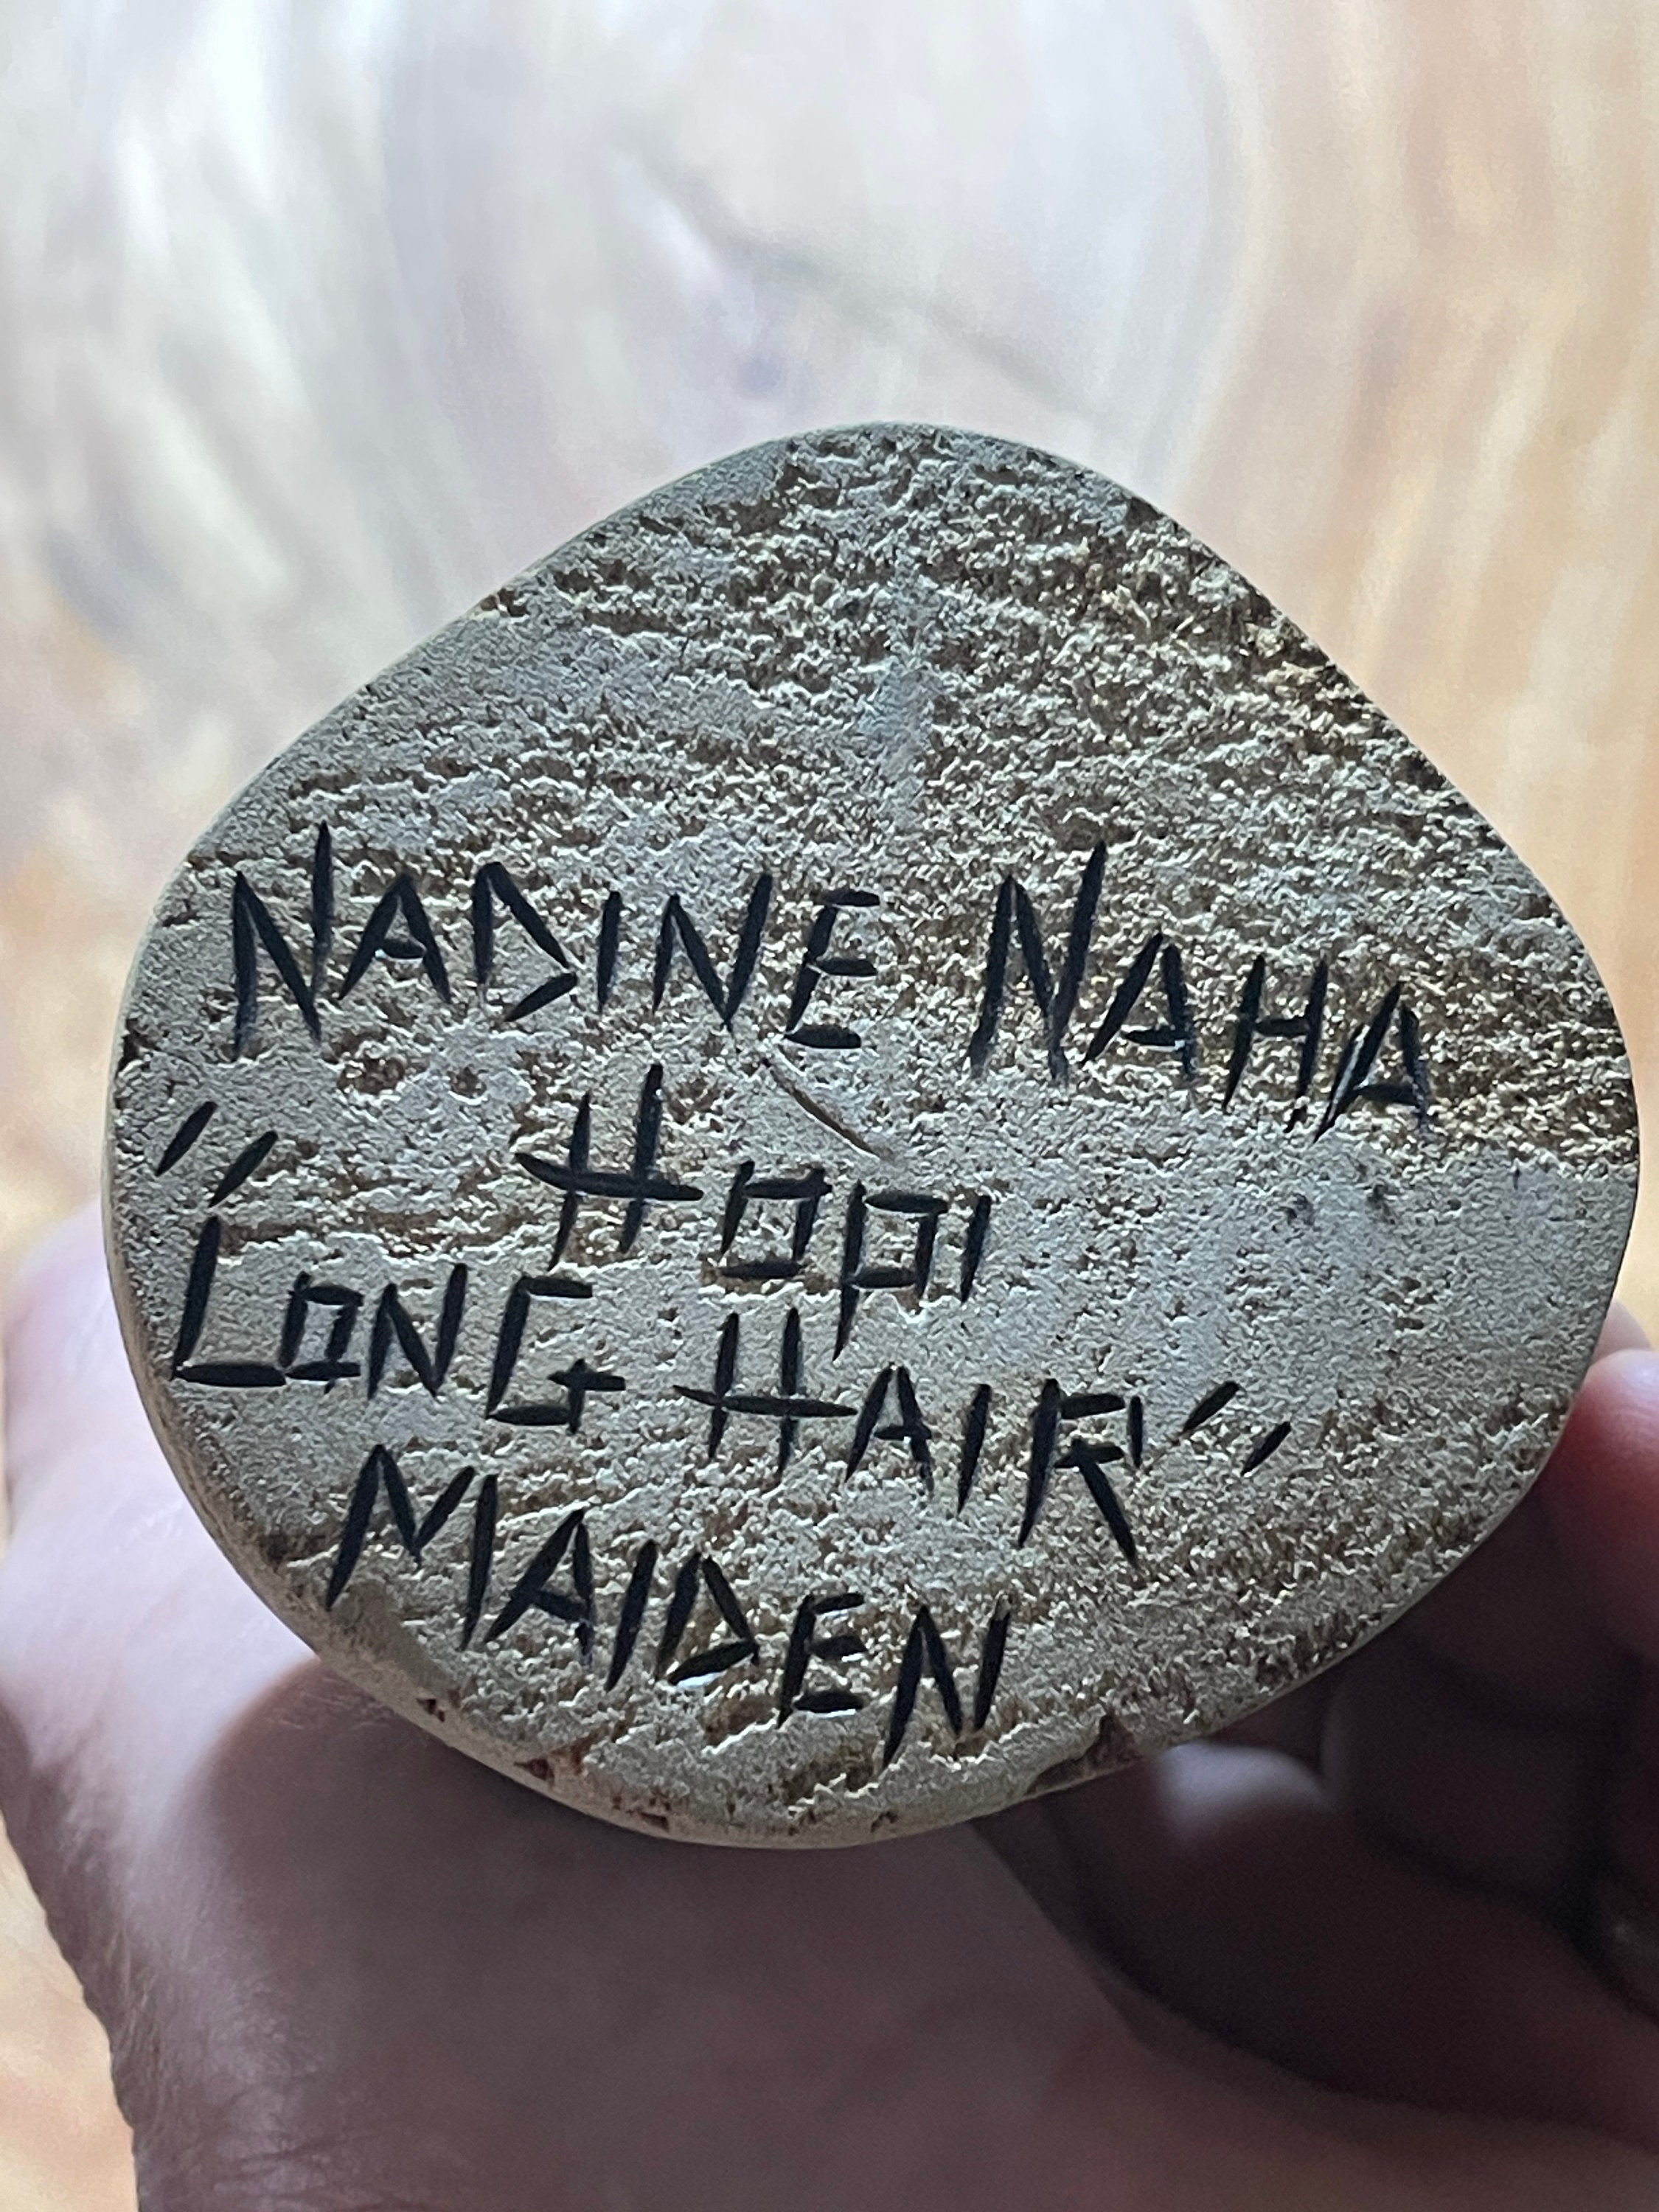 NADINE NAHA
HOPI
"LONG HAIR"
MAIDEN